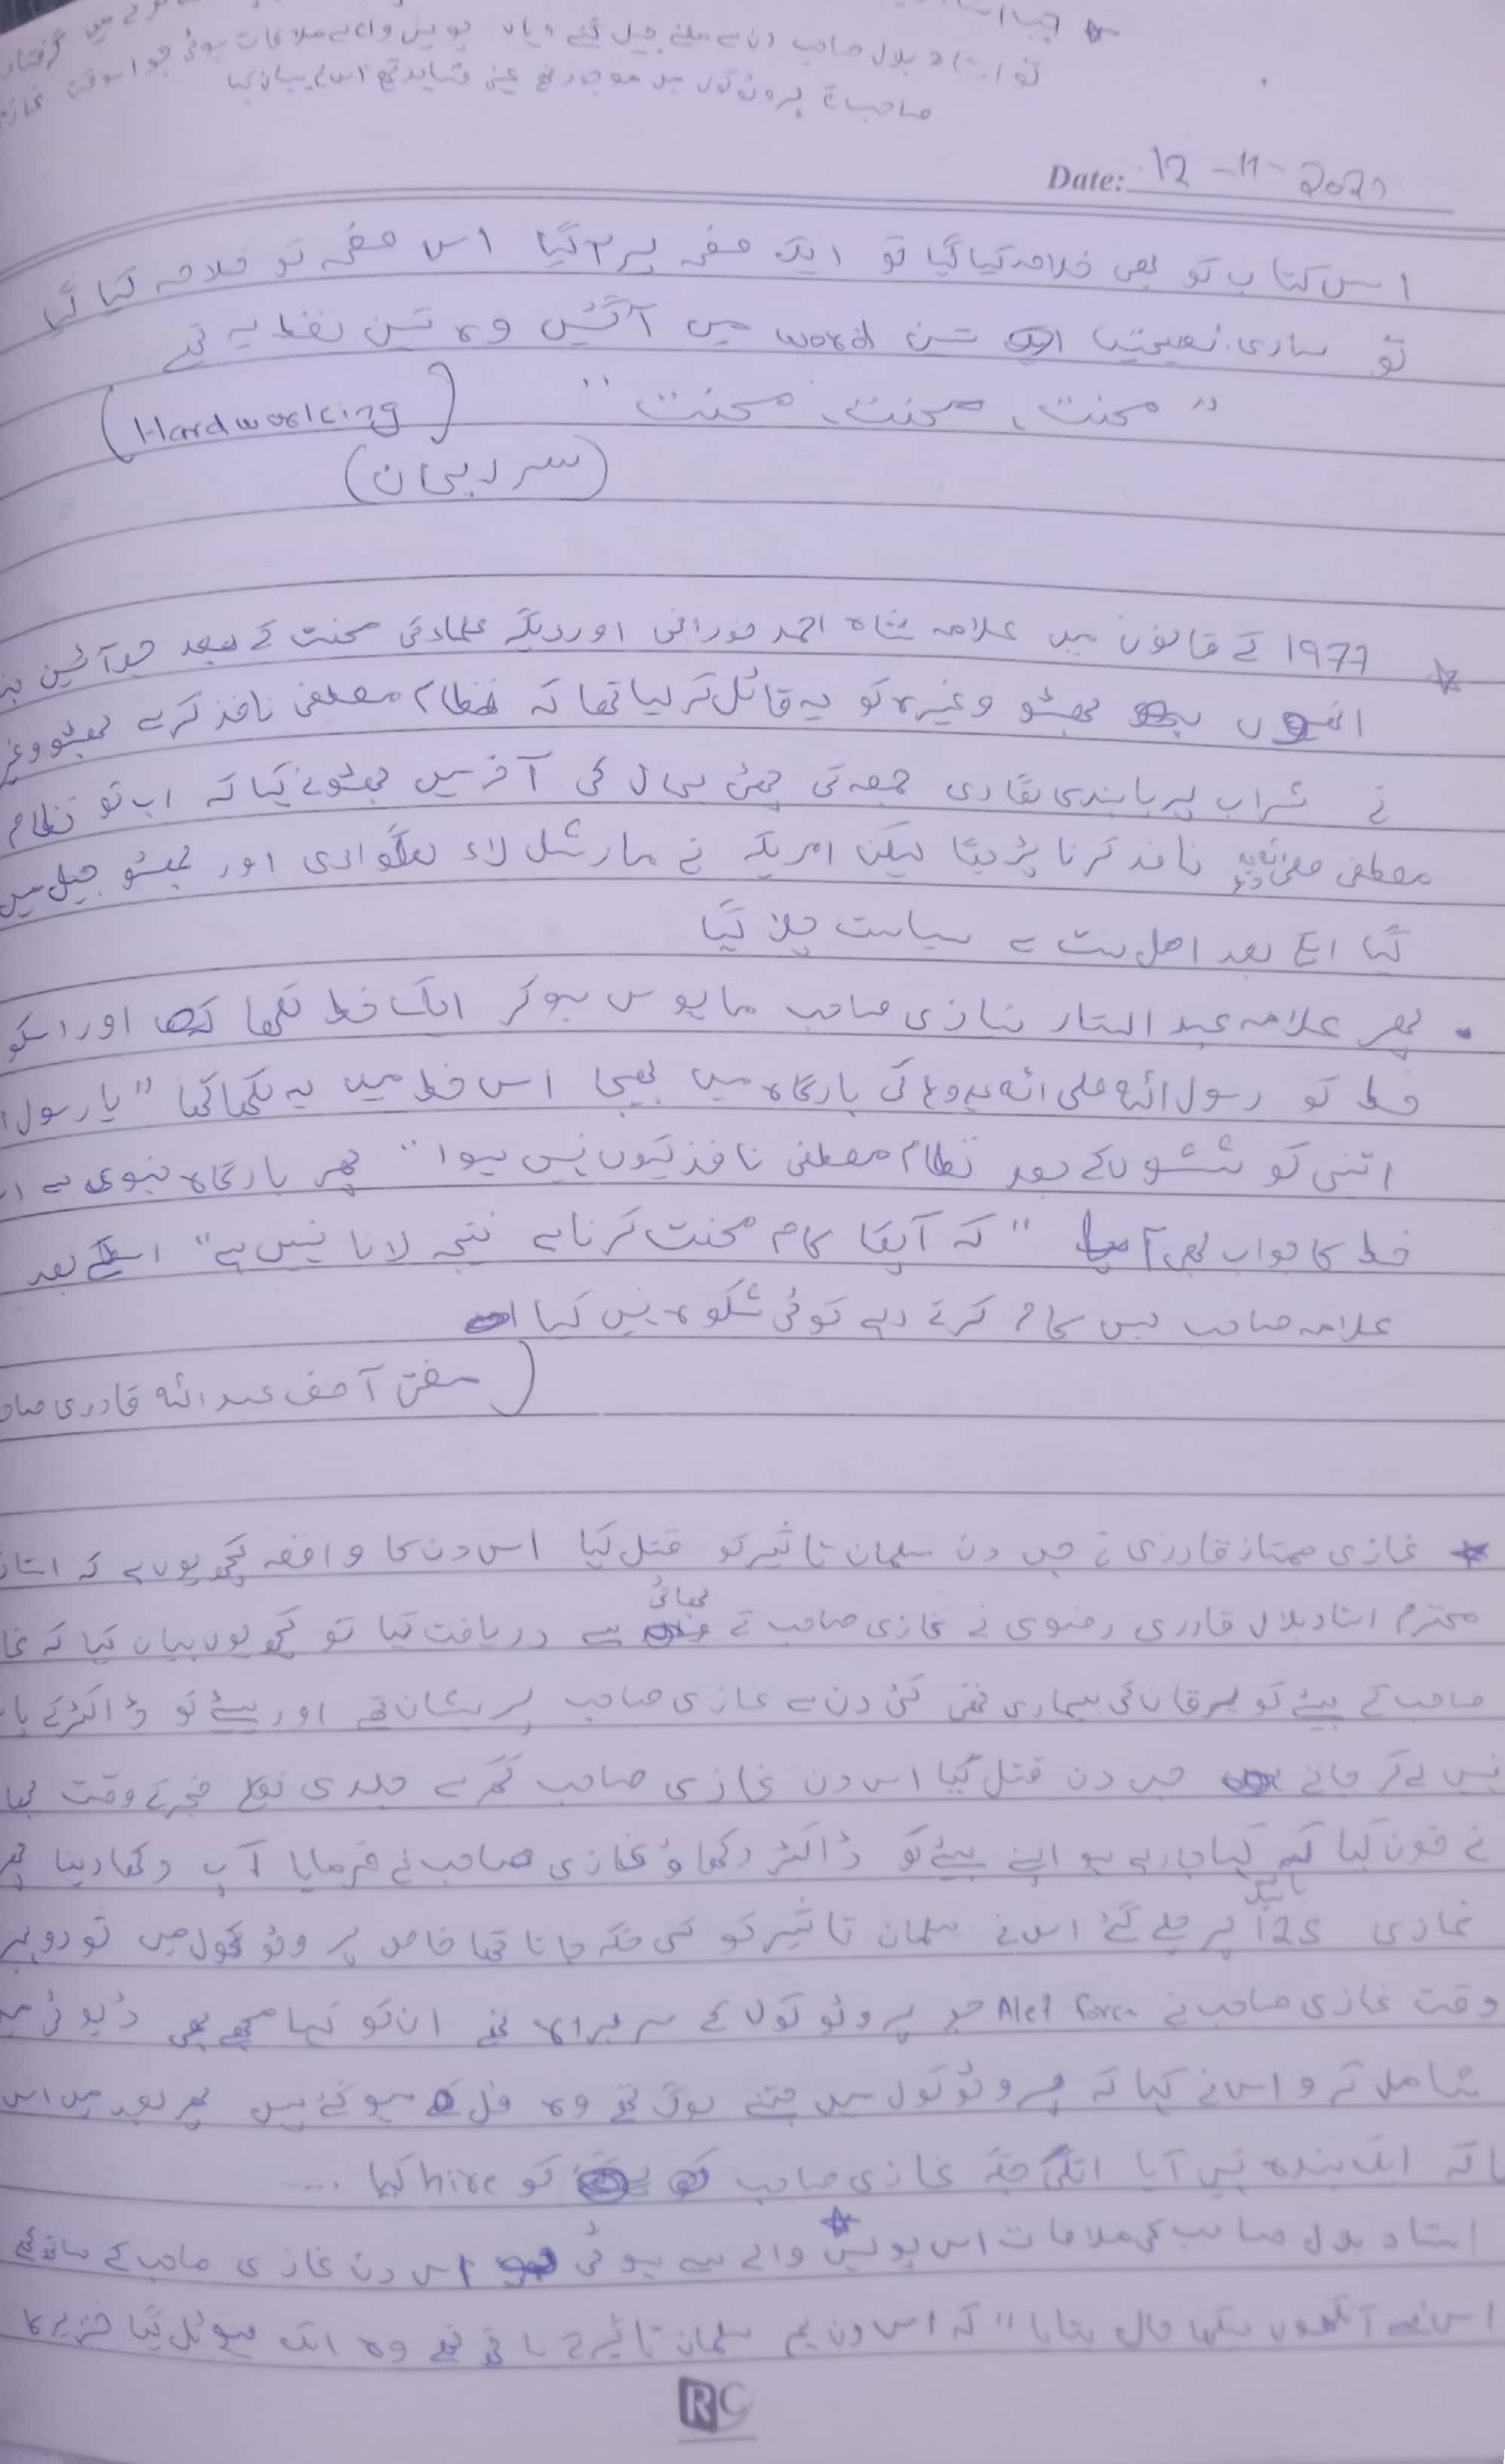 ☆ جب
تو استاد بلال صاحب ان سے ملنے جیل گئے وہاں پولیس والے سے ملاقات ہوئی جو اسوقت
صاحب کے پروٹوکول میں موجود تھے عینی شاہد تھے اس نے بیان کیا
Date: 12-11-2021
اس کتاب کو بھی خلاصہ کیا گیا تو ایک صفحہ پر آگیا اس صفحہ کو خلاصہ کیا گیا
تو ساری نصیحتیں تین word میں آگئیں وہ تین لفظ یہ تھے
"محنت، محنت، محنت" (Hardworking)
(سر ریحان)
☆ 1977 کے قانون میں علامہ شاہ احمد نورانی اور دیگر علماء کی محنت کے بعد جو آئین
انہوں بھٹو وغیرہ کو یہ قائل کر لیا تھا کہ نظام مصطفی نافذ کرے بھٹو
نے شراب پر پابندی لگادی جمعہ کی چھٹی بحال کی آخر میں بھٹو نے کہا کہ اب تو نظام
مصطفی نافذ کرنا پڑیگا لیکن امریکہ نے مارشل لاء لگوادی اور بھٹو جیل میں
گیا اسکے بعد اہل سنت سے سیاست چلا گیا
• پھر علامہ عبد الستار نیازی صاحب مایوس ہوکر ایک خط لکھا اور اسکو
خط کو رسول اللہ صلی اللہ علیہ وسلم کی بارگاہ میں بھیجا اس خط میں یہ لکھا تھا "یا رسول
اتنی کوششوں کے بعد نظام مصطفی نافذ کیوں نہیں ہوا" پھر بارگاہ نبوی سے
خط کا جواب بھی آیا "کہ آپکا کام محنت کرنا ہے نتیجہ لانا نہیں ہے" اسکے بعد
علامہ صاحب بس کام کرتے رہے کوئی شکوہ نہیں کیا
(مفتی آصف عبد اللہ قادری
☆ غازی ممتاز قادری نے جس دن سلمان تاثیر کو قتل کیا اس دن کا واقعہ کچھ یوں ہے کہ
محترم استاد بلال قادری رضوی نے غازی صاحب کے بھائی سے دریافت کیا تو کچھ یوں بیان کیا کہ
صاحب کے بیٹے کو یرقان کی بیماری تھی کئی دن سے غازی صاحب پریشان تھے اور بیٹے کو ڈاکٹر کے
نہیں لے کر جاتے جس دن قتل کیا اس دن غازی صاحب گھر سے جلدی نکلے فجر کے وقت
نے فون کیا کہ کہاں جارہے ہو اپنے بیٹے کو ڈاکٹر دکھاؤ غازی صاحب نے فرمایا آپ دکھا دینا
غازی 125 بائیک پر چلے گئے اس نے سلمان تاثیر کو کسی جگہ جانا تھا خاص پروٹوکول میں تو دوپہر
وقت غازی صاحب نے Alet force جو پروٹوکول کے سربراہ تھے ان کو کہا مجھے بھی ڈیوٹی
شامل کرو اس نے کہا کہ پروٹوکول میں جتنے لوگ تھے وہ فل ہوگئے ہیں پھر بعد میں اس
ایک بندہ نہیں آیا اسکی جگہ غازی صاحب کو hire کیا ....
استاد بلال صاحب کی ملاقات اس پولیس ☆ والے سے ہوئی اس دن غازی صاحب کے ساتھ
اس نے آنکھوں دیکھا حال بتایا "کہ اس دن ہم سلمان تاثیر کے ساتھ تھے وہ ایک ہوٹل گیا
RC